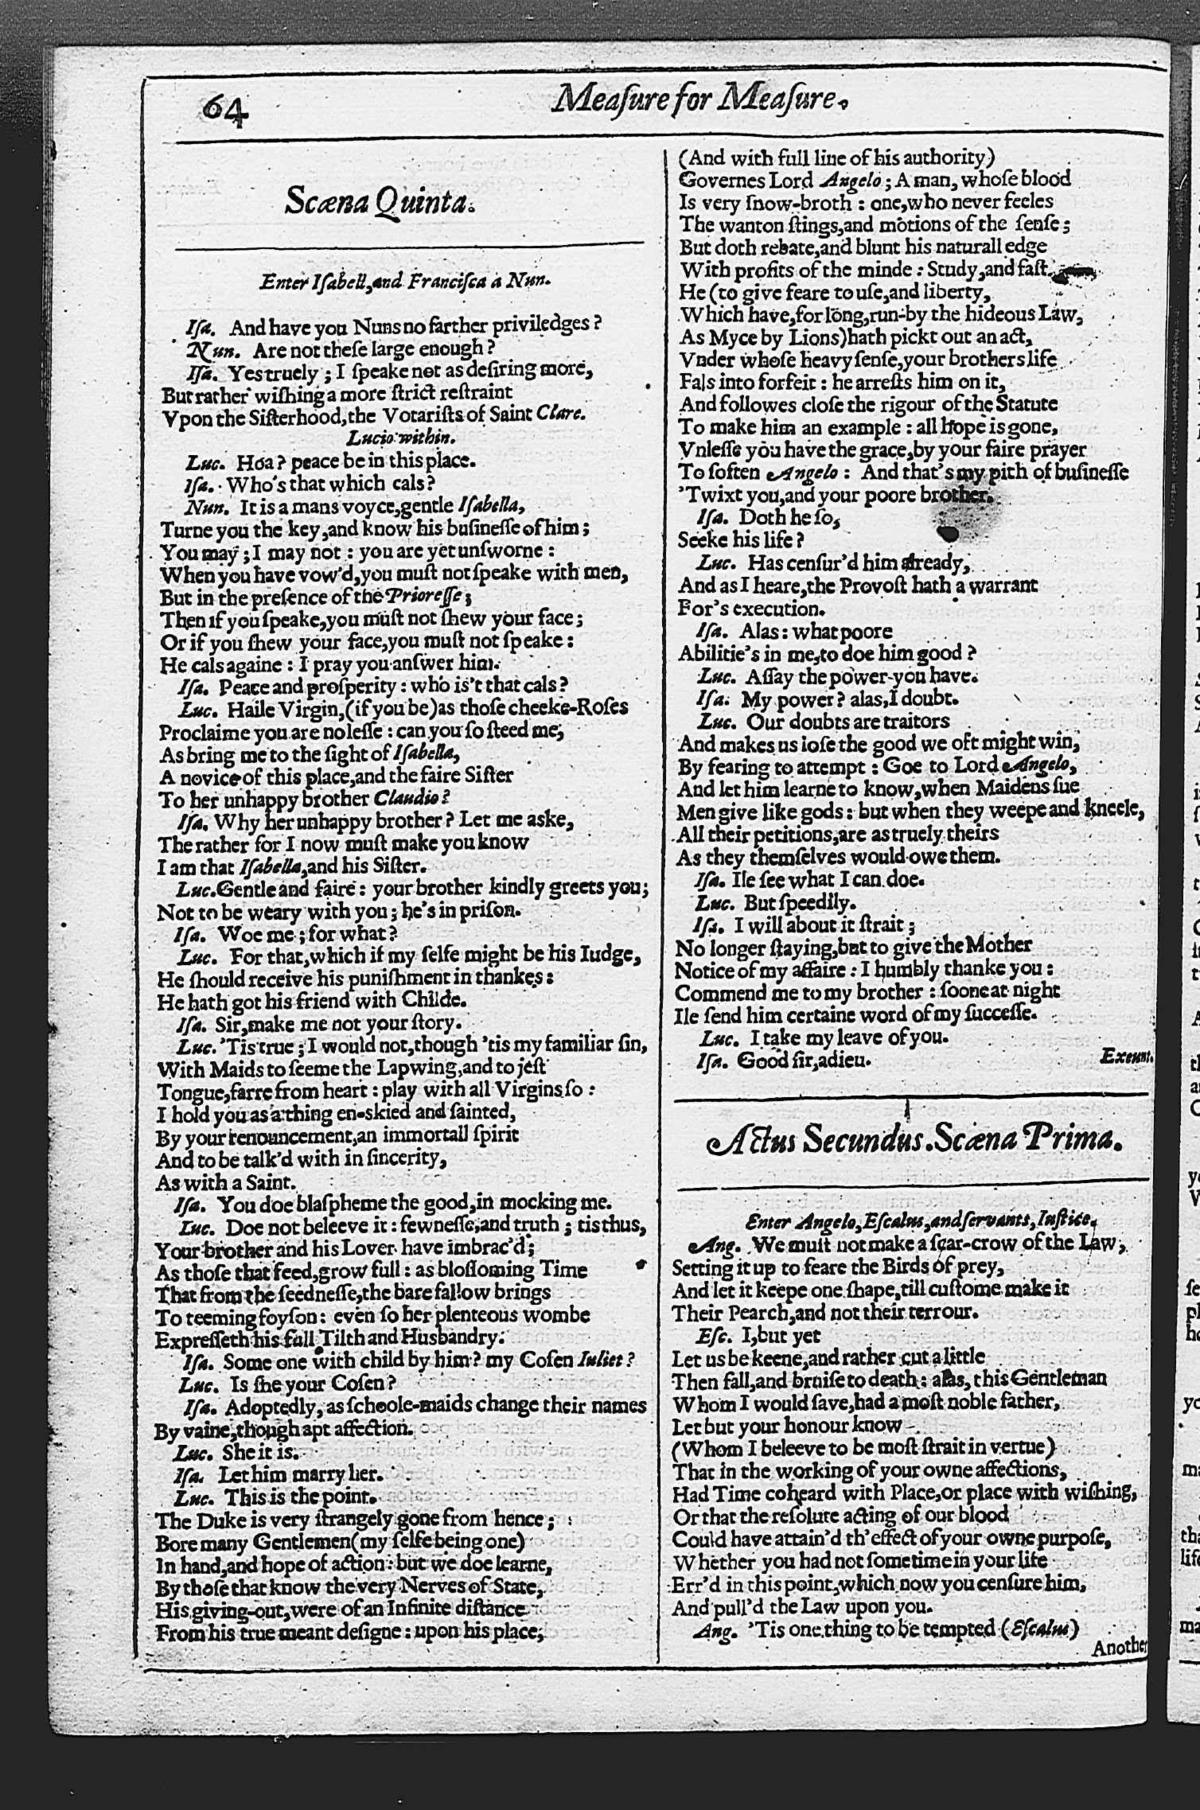 64
Meaſure for Meaſure.
Scæna Quinta.
Enter Iſabell, and Franciſca a Nun.
Iſa. And have you Nuns no farther priviledges?
Nun. Are not theſe large enough?
Iſa. Yes truely; I ſpeake not as deſiring more,
But rather wiſhing a more ſtrict reſtraint
Vpon the Siſterhood, the Votariſts of Saint Clare.
Lucio within.
Luc. Hoa? peace be in this place.
Iſa. Who's that which cals?
Nun. It is a mans voyce, gentle Iſabella,
Turne you the key, and know his buſineſſe of him;
You may; I may not: you are yet unſworne:
When you have vow'd, you muſt not ſpeake with men,
But in the preſence of the Prioreſſe;
Then if you ſpeake, you muſt not ſhew your face;
Or if you ſhew your face, you muſt not ſpeake:
He cals againe: I pray you anſwer him.
Iſa. Peace and proſperity: who is't that cals?
Luc. Haile Virgin, (if you be) as thoſe cheeke-Roſes
Proclaime you are no leſſe: can you ſo ſteed me,
As bring me to the ſight of Iſabella,
A novice of this place, and the faire Siſter
To her unhappy brother Claudio?
Iſa. Why her unhappy brother? Let me aske,
The rather for I now muſt make you know
I am that Iſabella, and his Siſter.
Luc. Gentle and faire: your brother kindly greets you;
Not to be weary with you; he's in priſon.
Iſa. Woe me; for what?
Luc. For that, which if my ſelfe might be his Iudge,
He ſhould receive his puniſhment in thankes:
He hath got his friend with Childe.
Iſa. Sir, make me not your ſtory.
Luc. 'Tis true; I would not, though 'tis my familiar ſin,
With Maids to ſeeme the Lapwing, and to jeſt
Tongue, farre from heart: play with all Virgins ſo:
I hold you as a thing en-skied and ſainted,
By your renouncement, an immortall ſpirit
And to be talk'd with in ſincerity,
As with a Saint.
Iſa. You doe blaſpheme the good, in mocking me.
Luc. Doe not beleeve it: fewneſſe, and truth; tis thus,
Your brother and his Lover have imbrac'd;
As thoſe that feed, grow full: as bloſſoming Time
That from the ſeedneſſe, the bare fallow brings
To teeming foyſon: even ſo her plenteous wombe
Expreſſeth his full Tilth and Husbandry.
Iſa. Some one with child by him? my Coſen Iuliet?
Luc. Is ſhe your Coſen?
Iſa. Adoptedly, as ſchoole-maids change their names
By vaine, though apt affection.
Luc. She it is.
Iſa. Let him marry her.
Luc. This is the point.
The Duke is very ſtrangely gone from hence;
Bore many Gentlemen (my ſelfe being one)
In hand, and hope of action: but we doe learne,
By thoſe that know the very Nerves of State,
His giving-out, were of an Infinite diſtance
From his true meant deſigne: upon his place,
(And with full line of his authority)
Governes Lord Angelo; A man, whoſe blood
Is very ſnow-broth: one, who never feeles
The wanton ſtings, and motions of the ſenſe;
But doth rebate, and blunt his naturall edge
With profits of the minde: Study, and faſt.
He (to give feare to uſe, and liberty,
Which have, for long, run-by the hideous Law,
As Myce by Lions) hath pickt out an act,
Vnder whoſe heavy ſenſe, your brothers life
Fals into forfeit: he arreſts him on it,
And followes cloſe the rigour of the Statute
To make him an example: all hope is gone,
Vnleſſe you have the grace, by your faire prayer
To ſoften Angelo: And that's my pith of buſineſſe
'Twixt you, and your poore brother.
Iſa. Doth he ſo,
Seeke his life?
Luc. Has cenſur'd him already,
And as I heare, the Provoſt hath a warrant
For's execution.
Iſa. Alas: what poore
Abilitie's in me, to doe him good?
Luc. Aſſay the power you have.
Iſa. My power? alas, I doubt.
Luc. Our doubts are traitors
And makes us loſe the good we oft might win,
By fearing to attempt: Goe to Lord Angelo,
And let him learne to know, when Maidens ſue
Men give like gods: but when they weepe and kneele,
All their petitions, are as truely theirs
As they themſelves would owe them.
Iſa. Ile ſee what I can doe.
Luc. But ſpeedily.
Iſa. I will about it ſtrait;
No longer ſtaying, but to give the Mother
Notice of my affaire: I humbly thanke you:
Commend me to my brother: ſoone at night
Ile ſend him certaine word of my ſucceſſe.
Luc. I take my leave of you.
Iſa. Good ſir, adieu. Exeunt.
Actus Secundus. Scæna Prima.
Enter Angelo, Eſcalus, and ſervants, Iuſtice.
Ang. We muſt not make a ſcar-crow of the Law,
Setting it up to feare the Birds of prey,
And let it keepe one ſhape, till cuſtome make it
Their Pearch, and not their terrour.
Eſc. I, but yet
Let us be keene, and rather cut a little
Then fall, and bruiſe to death: alas, this Gentleman
Whom I would ſave, had a moſt noble father,
Let but your honour know
(Whom I beleeve to be moſt ſtrait in vertue)
That in the working of your owne affections,
Had Time coheard with Place, or place with wiſhing,
Or that the reſolute acting of our blood
Could have attain'd th'effect of your owne purpoſe,
Whether you had not ſometime in your life
Err'd in this point, which now you cenſure him,
And pull'd the Law upon you.
Ang. 'Tis one thing to be tempted (Eſcalus)
Another